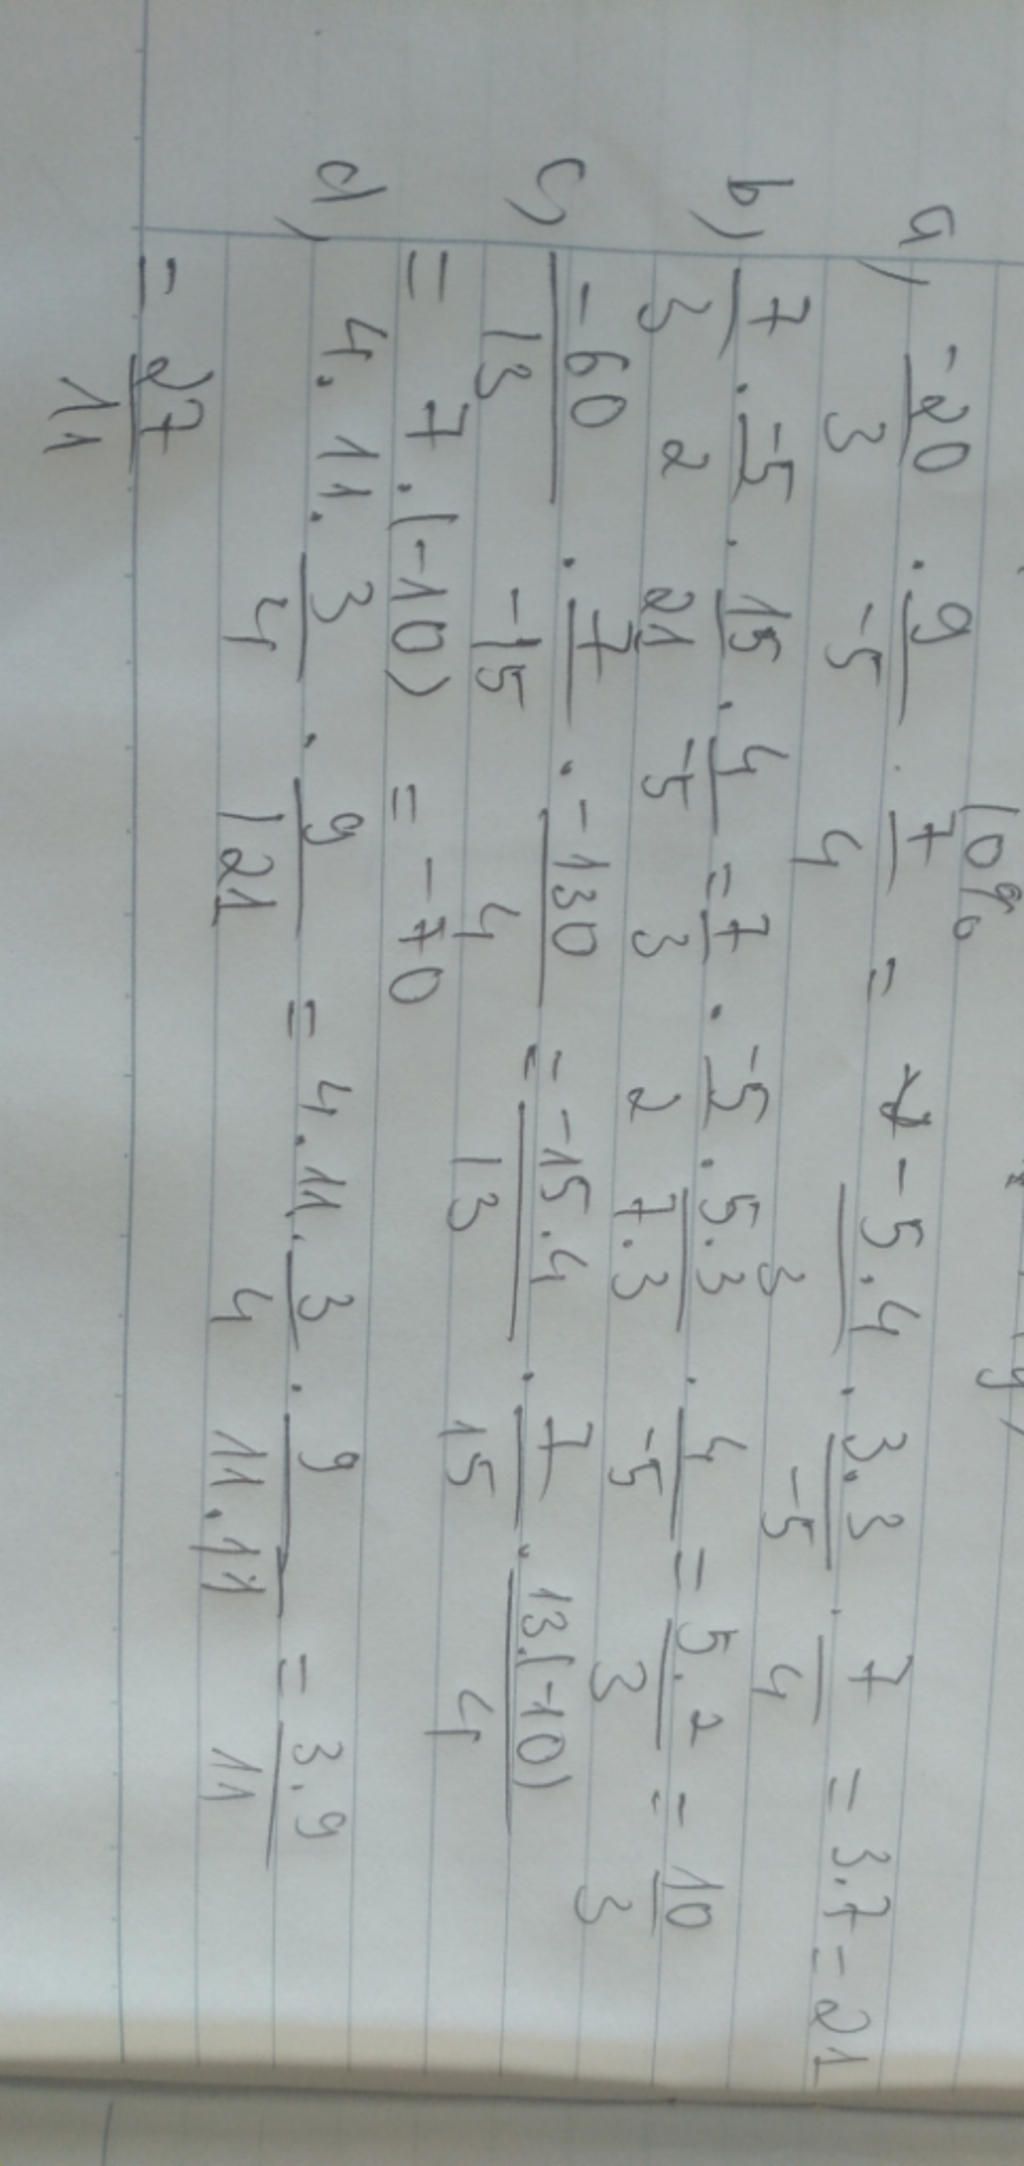 10%
a) -20/3 . 9/-5 . 7/4 = -5.4/3 . 3.3/-5 . 7/4 = 3.7 = 21
b) 7/3 . -5/2 . 15/21 . 4/-5 = 7/3 . -5/2 . 5.3/7.3 . 4/-5 = 5.2/3 = 10/3
c) -60/13 . 7/-15 . -130/4 = -15.4/13 . 7/15 . 13.(-10)/4
= 7.(-10) = -70
d) 4.11.3/4 . 9/121 = 4.11.3/4 . 9/11.11 = 3.9/11
= 27/11